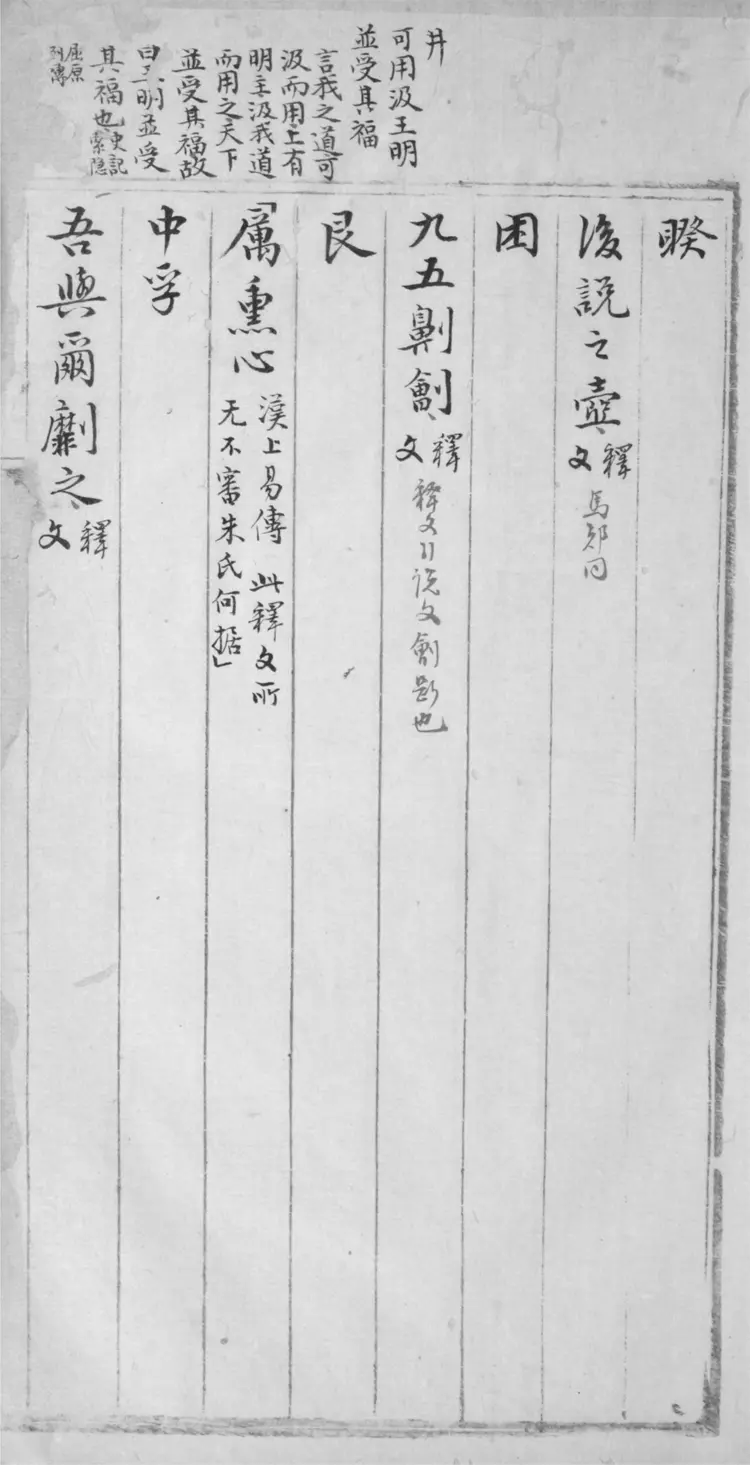 井
可用汲王明
並受其福
言我之道可
汲而用上有
明主汲我道
而用之天下
並受其福故
曰王明並受
其福也 史記索隐
屈原列傳
睽
後説之壺 釋文 馬郑同
困
九五劓劊 釋文 釋文引説文劊斷也
艮
「厲熏心 漢上易傳 此釋文所
无不審朱氏何据」
中孚
吾與爾劘之 釋文